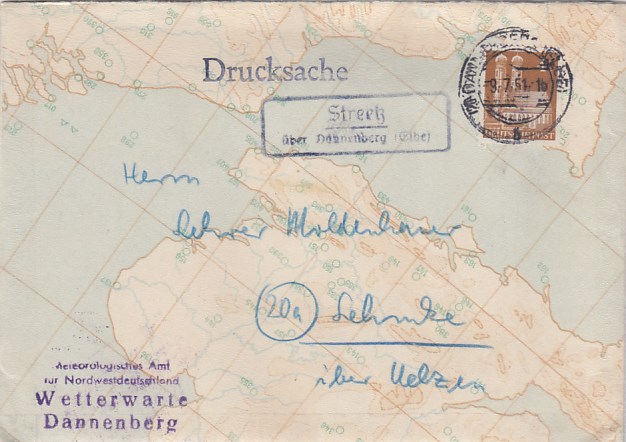 Drucksache
9.7.51.-1
Streetz
über Dannenberg (Elbe)
Herrn
Lehrer Moldenhauer
20a Lehmke
über Uelzen
Meteorologisches Amt
für Nordwestdeutschland
Wetterwarte
Dannenberg